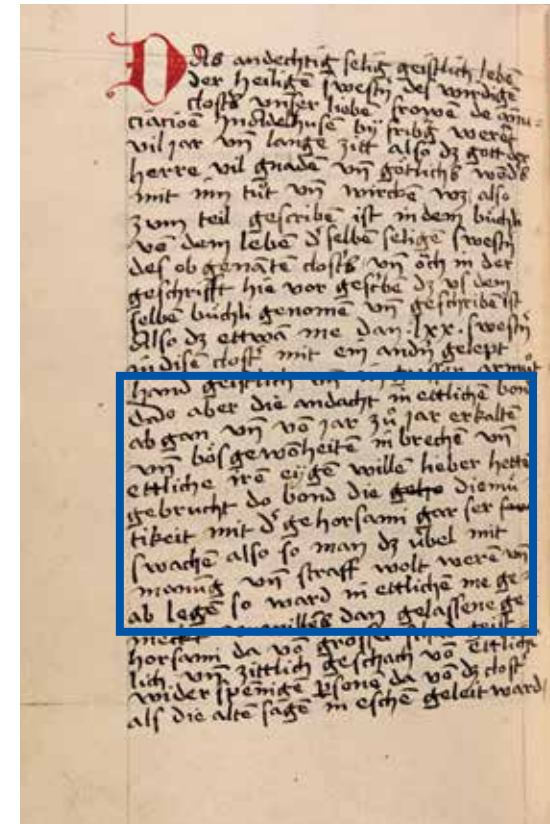 Das andechtig selig geistlich lebē
der heiligē swestn̄ des wirdigē
closts vnser liebē frowen de ānū=
ciacioē zu adelhusen bÿ fribḡ weret
vil jar vn̄ lange zitt also dz gott der
herre vil gnaden vn̄ gōtlichs wōds
mit inn tůt vn̄ wircke wz also
zum teil gescribē ist in dem bůchli
vō dem lebē d' selbē seligē swestn̄
des ob genātē closts vn̄ ōch in der
geschrifft hie vor gescbē dz vs dem
selbē bůchli genomē vn̄ geschribē ist
Also dz ettwā me dan .lxx. swestn̄
in disē clost' mit ein andn̄ gelept
hand geistlich vn̄ in grosser armůt
Dado aber die andacht in ettlichē bond
ab gan vn̄ vō jar zů jar erkaltē
vn̄ bōs gewonheitē in brechē vn̄
ettliche irē eÿgē wille lieber hettē
gebrucht do bond die diemů
tikeit mit d' gehorsami gar ser
swachē also so man dz ūbel mit
manūg vn̄ straff wolt werē vn̄
ab legē so ward in ettlichē me ge
merckt willēs dan gelassene ge
horsami da vō grosser geist
lich vn̄ zittlich geschach vō ettlichē
wider spenigē psonē da vō dz clost'
als die altē sagē in eschē geleit ward